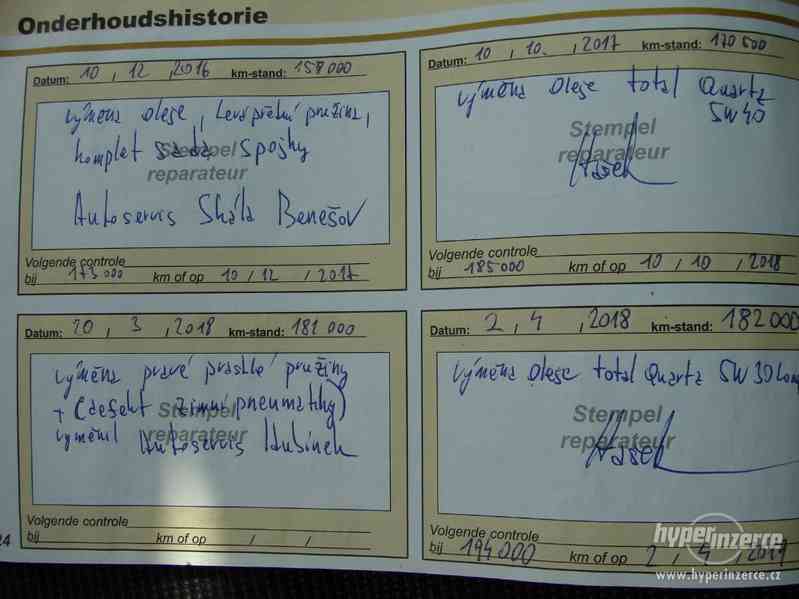 Onderhoudshistorie
Datum: 10 , 12 , 2016 km-stand: 158 000
výměna oleje, levá přední pružina,
komplet sada spojky
Stempel
reparateur
Autoservis Skála Benešov
Volgende controle
bij 173 000 km of op 10 / 12 / 2017
Datum: 10 , 10. , 2017 km-stand: 170 500
výměna oleje total Quartz
5W40
Stempel
reparateur
Volgende controle
bij 185 000 km of op 10 / 10 / 2018
Datum: 20 , 3 , 2018 km-stand: 181 000
výměna pravé prasklé pružiny
+ (defekt zimní pneumatiky)
Stempel
vyměnil Autoservis Hubínek
reparateur
Volgende controle
bij km of op / /
24
Datum: 2 , 4 , 2018 km-stand: 182 000
výměna oleje total Quartz 5W30
Stempel
reparateur
Volgende controle
bij 194 000 km of op 2 / 4 / 2019
hyperinzerce
www.hyperinzerce.cz